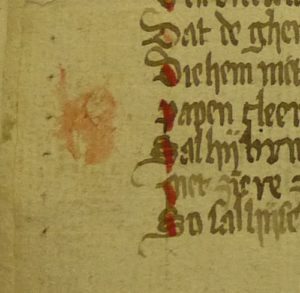 Dat de ghen
Die hem met
papen cleer
Sal hij
met zijre
So sal hijse